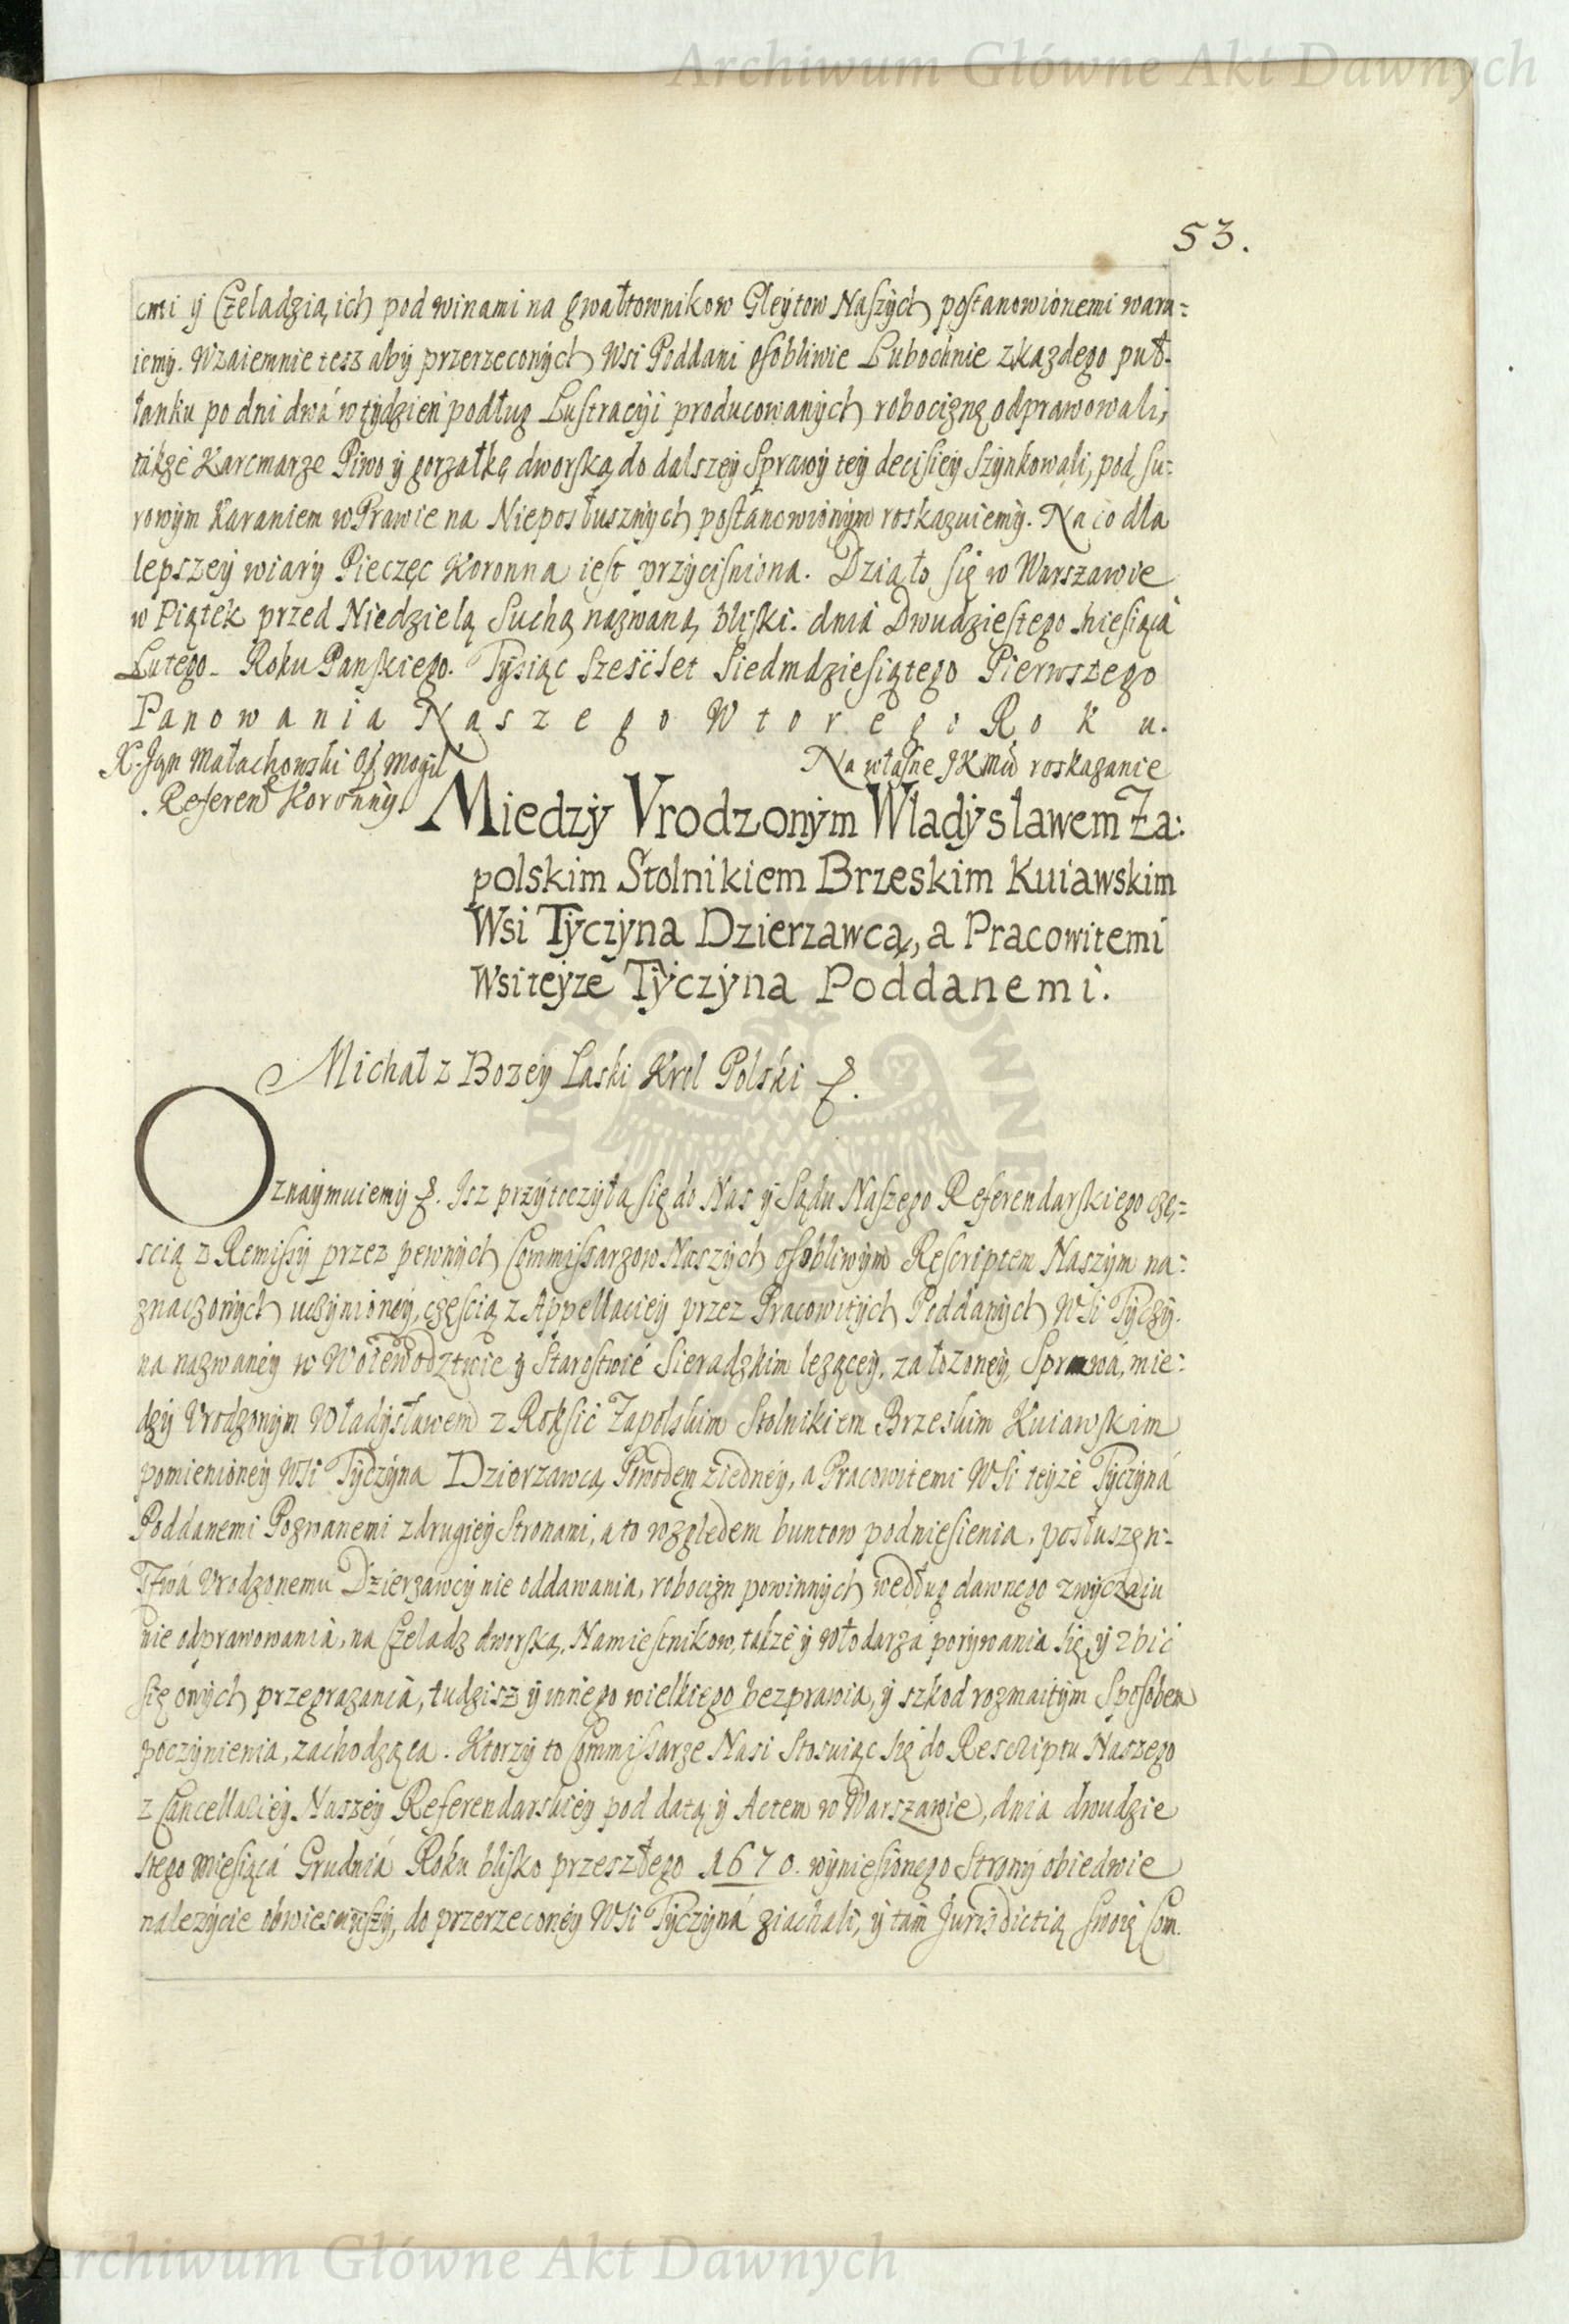 Archiwum Główne Akt Dawnych
53.
cmi ÿ Czeladzią ich pod winami na gwałtownikow Gleÿtow Naszÿch postanowionemi waru=
iemÿ. Wzaiemnie tesz abÿ przerzeconÿch Wsi Poddani osobliwie Lubochnie zkazdego puł=
łanku po dni dwá w tÿdzień podług Lustracÿi producowanÿch robociznę odprawowali,
tákże Karcmarze Piwo ÿ gorzałkę dworską do dalszeÿ Sprawÿ teÿ decisieÿ Szÿnkowali, pod su=
rowÿm Karaniem w Prawie na Nieposłusznÿch postanowionÿm roskazuiemÿ. Na co dla
lepszeÿ wiarÿ Pieczęc Koronna iest przÿcisniona. Działo się w Warszawie
w Piątek przed Niedzielą Suchą nazwaną bliski. dnia Dwudziestego Miesiąca
Lutego. Roku Panskiego. Tÿsiąc Szescset Siedmdziesiątego Pierwszego
Panowania Naszego Wtorego Roku.
X. Jan Małachowski Of Mogil
Na własne JKMći roskazanie
. Referen Koronnÿ.
Miedzÿ Vrodzonÿm Wladÿsławem Za:
polskim Stolnikiem Brzeskim Kuiawskim
Wsi Tÿczÿna Dzierzawcą, a Pracowitemi
Wsi teÿze Tÿczÿna Poddanemi.
Michał z Bozeÿ Laski Krol Polski &.
Oznaÿmuiemÿ &. Isz przÿtoczÿła się do Nas ÿ Sądu Naszego Referendarskiego czę=
scią z Remissÿ przez pewnÿch Commissarzow Naszÿch osobliwÿm Rescriptem Naszÿm na=
znaczonÿch uczÿnioneÿ, częscią z Appellacieÿ przez Pracowitÿch Poddanÿch Wsi Tÿczÿ.
na nazwaneÿ w Woiewodztwie ÿ Starostwie Sieradzkim lezączeÿ, załozoneÿ, Sprawá, mie=
dzÿ Vrodzonÿm Władÿsławem z Roksic Zapolskim Stolnikiem Brzeskim Kuiawskim
pomienioneÿ Wsi Tÿczÿna Dzierzawcą, Powodem ziedneÿ, a Pracowitemi Wsi teÿże Tÿczÿná
Poddanemi Pozwanemi zdrugieÿ Stronami, a to względem buntow podniesienia, posłuszen=
stwá Vrodzonemu Dzierzawcÿ nie oddawania, robocizn powinnÿch według dawnego zwÿczaiu
nie odprawowania, na Czeladz dworską, Namiestnikow, takze ÿ włodarza porÿwania się, ÿ zbic
się onÿch przegrazania, tudzisz ÿ innego wielkiego bezprawia, ÿ szkod rozmaitÿm Sposobem
poczÿnienia, zachodząca. Ktorzÿ to Commissarze Nasi Stosuiąc się do Rescriptu Naszego
z Cancellacieÿ Naszeÿ Referendarskieÿ pod datą ÿ Actem w Warszawie, dnia dwudzie
stego Miesiącá Grudniá Roku blisko przeszłego 1670. wÿniesionego Stronÿ obiedwie
nalezÿcie obwiesciwszÿ, do przerzeconeÿ Wsi Tÿczÿná ziachali, ÿ tam Jurisdictią swoię Com.
Archiwum Główne Akt Dawnych